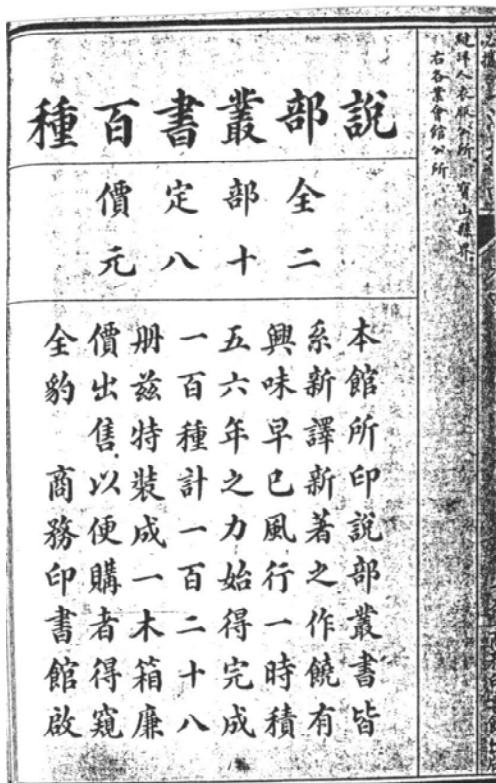 右各業會館公所
說部叢書百種
全部定價
二十八元
本館所印說部叢書皆
系新譯新著之作饒有
興味早已風行一時積
五六年之力始得完成
一百種計一百二十八
册茲特裝成一木箱廉
價出售以便購者得窺
全豹 商務印書館啟